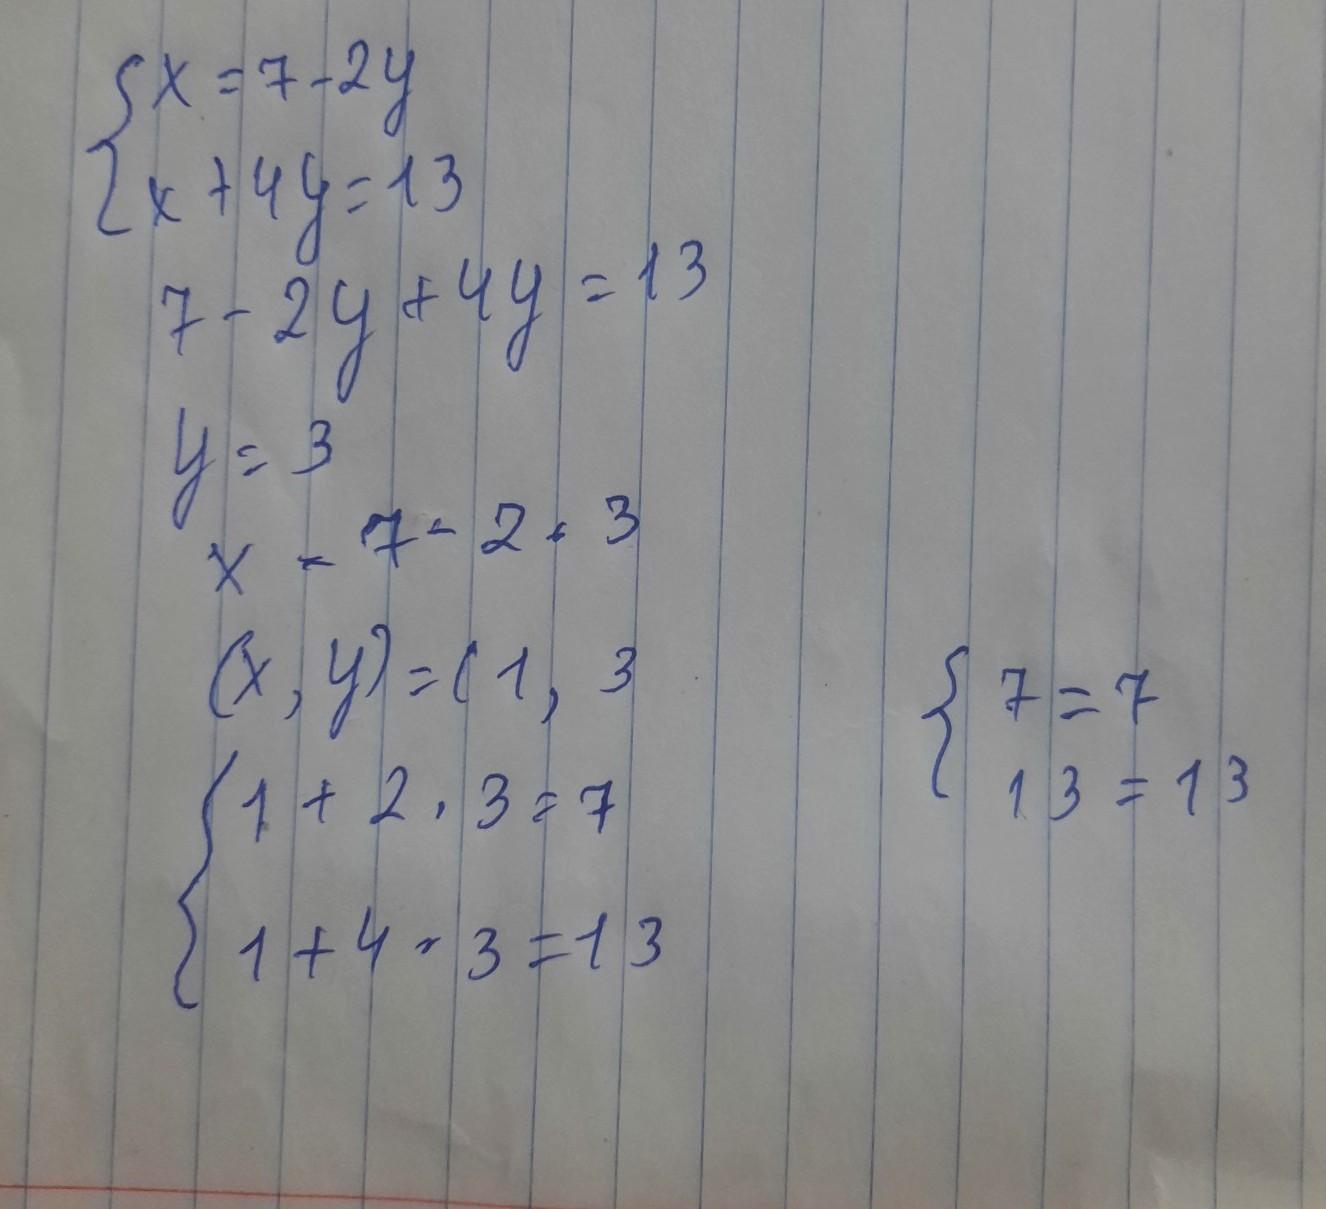 { x = 7 - 2y
x + 4y = 13
7 - 2y + 4y = 13
y = 3
x - 7 - 2 · 3
(x, y) = (1, 3
{ 1 + 2 · 3 = 7
1 + 4 · 3 = 13
{ 7 = 7
13 = 13